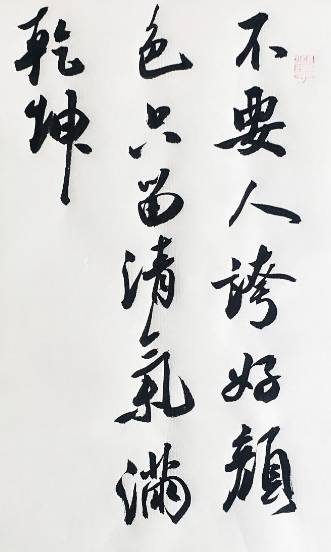 不要人誇好顏
色只留清氣滿
乾坤